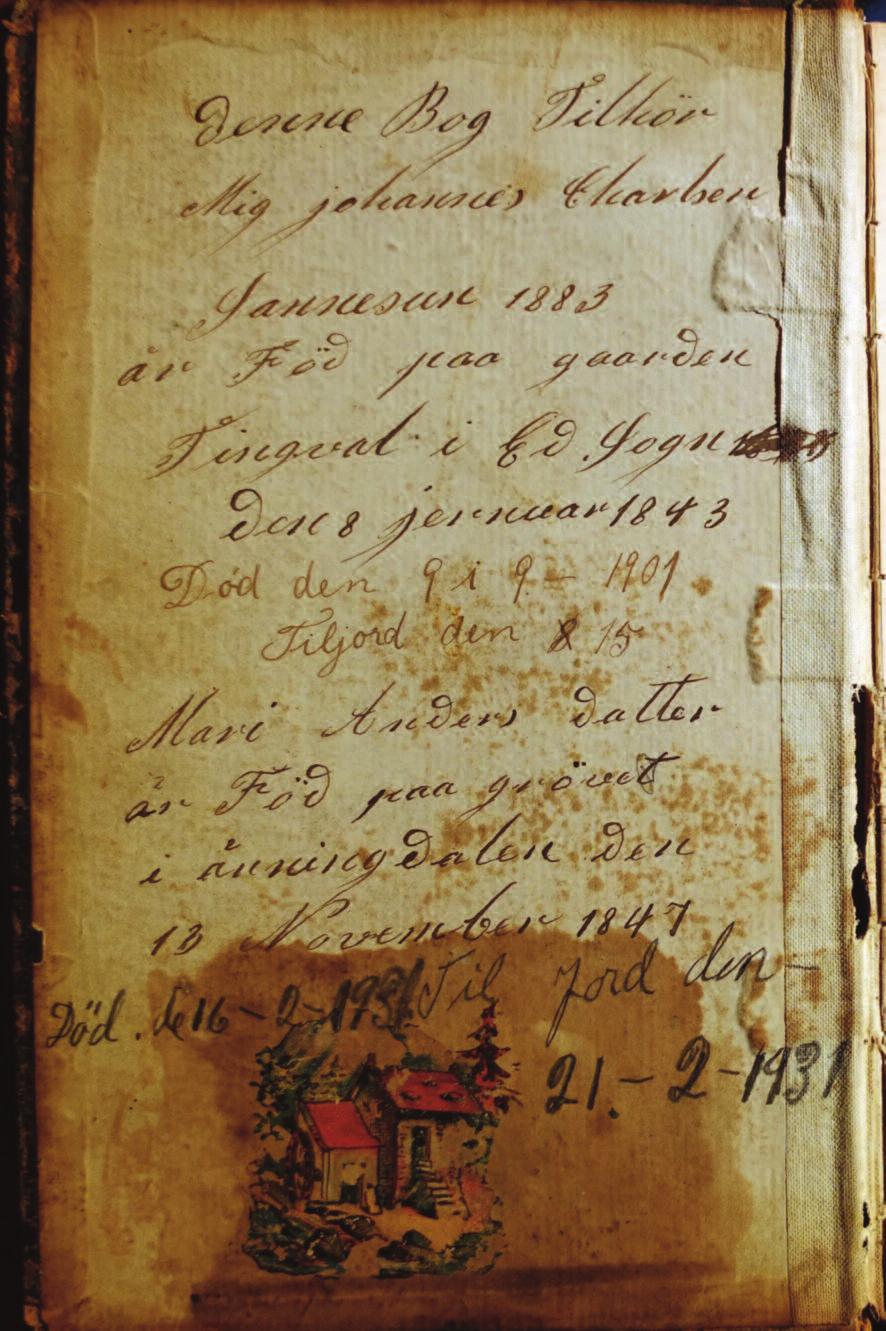 Denne Bog Tilhör
Mig johannes Charlsen
Sannesun 1883
är Föd paa gaarden
Tingval i Ed Sogn
Den 8 jernuar 1843
Död den 9 i 9 - 1901
Tiljord den 15
Mari Anders datter
är Föd paa grövet
i änningdalen den
13 November 1847
Död. de 16 - 2 - 1931 Til Jord den -
21. - 2 - 1931